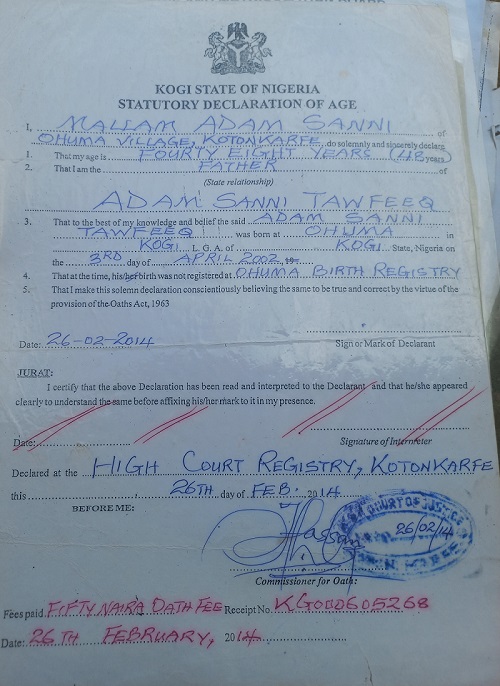 KOGI STATE OF NIGERIA
STATUTORY DECLARATION OF AGE
I, MALLAM ADAM SANNI of
OHUMA VILLAGE, KOTONKARFE do solemnly and sincerely declare
1. That my age is FOURTY EIGHT YEARS (48 years)
2. That I am the FATHER of
(State relationship)
ADAM SANNI TAWFEEQ
3. That to the best of my knowledge and belief the said ADAM SANNI
TAWFEEQ was born at OHUMA in
KOGI L.G.A. of KOGI State, Nigeria on
the 3RD day of APRIL 2002, 19
4. That at the time, his/her birth was not registered at OHUMA BIRTH REGISTRY
5. That I make this solemn declaration conscientiously believing the same to be true and correct by the virtue of the
provision of the Oaths Act, 1963
Date: 26-02-2014 Sign or Mark of Declarant
JURAT:
I certify that the above Declaration has been read and interpreted to the Declarant and that he/she appeared
clearly to understand the same before affixing his/her mark to it in my presence.
Date: Signature of Interpreter
Declared at the HIGH COURT REGISTRY, KOTONKARFE
this 26TH day of FEB. 2014
BEFORE ME:
Hassan
COURT OF JUSTICE
26/02/14
Commissioner for Oath:
Fees paid FIFTY NAIRA OATH FEE Receipt No. KG000605268
Date: 26TH FEBRUARY, 2014